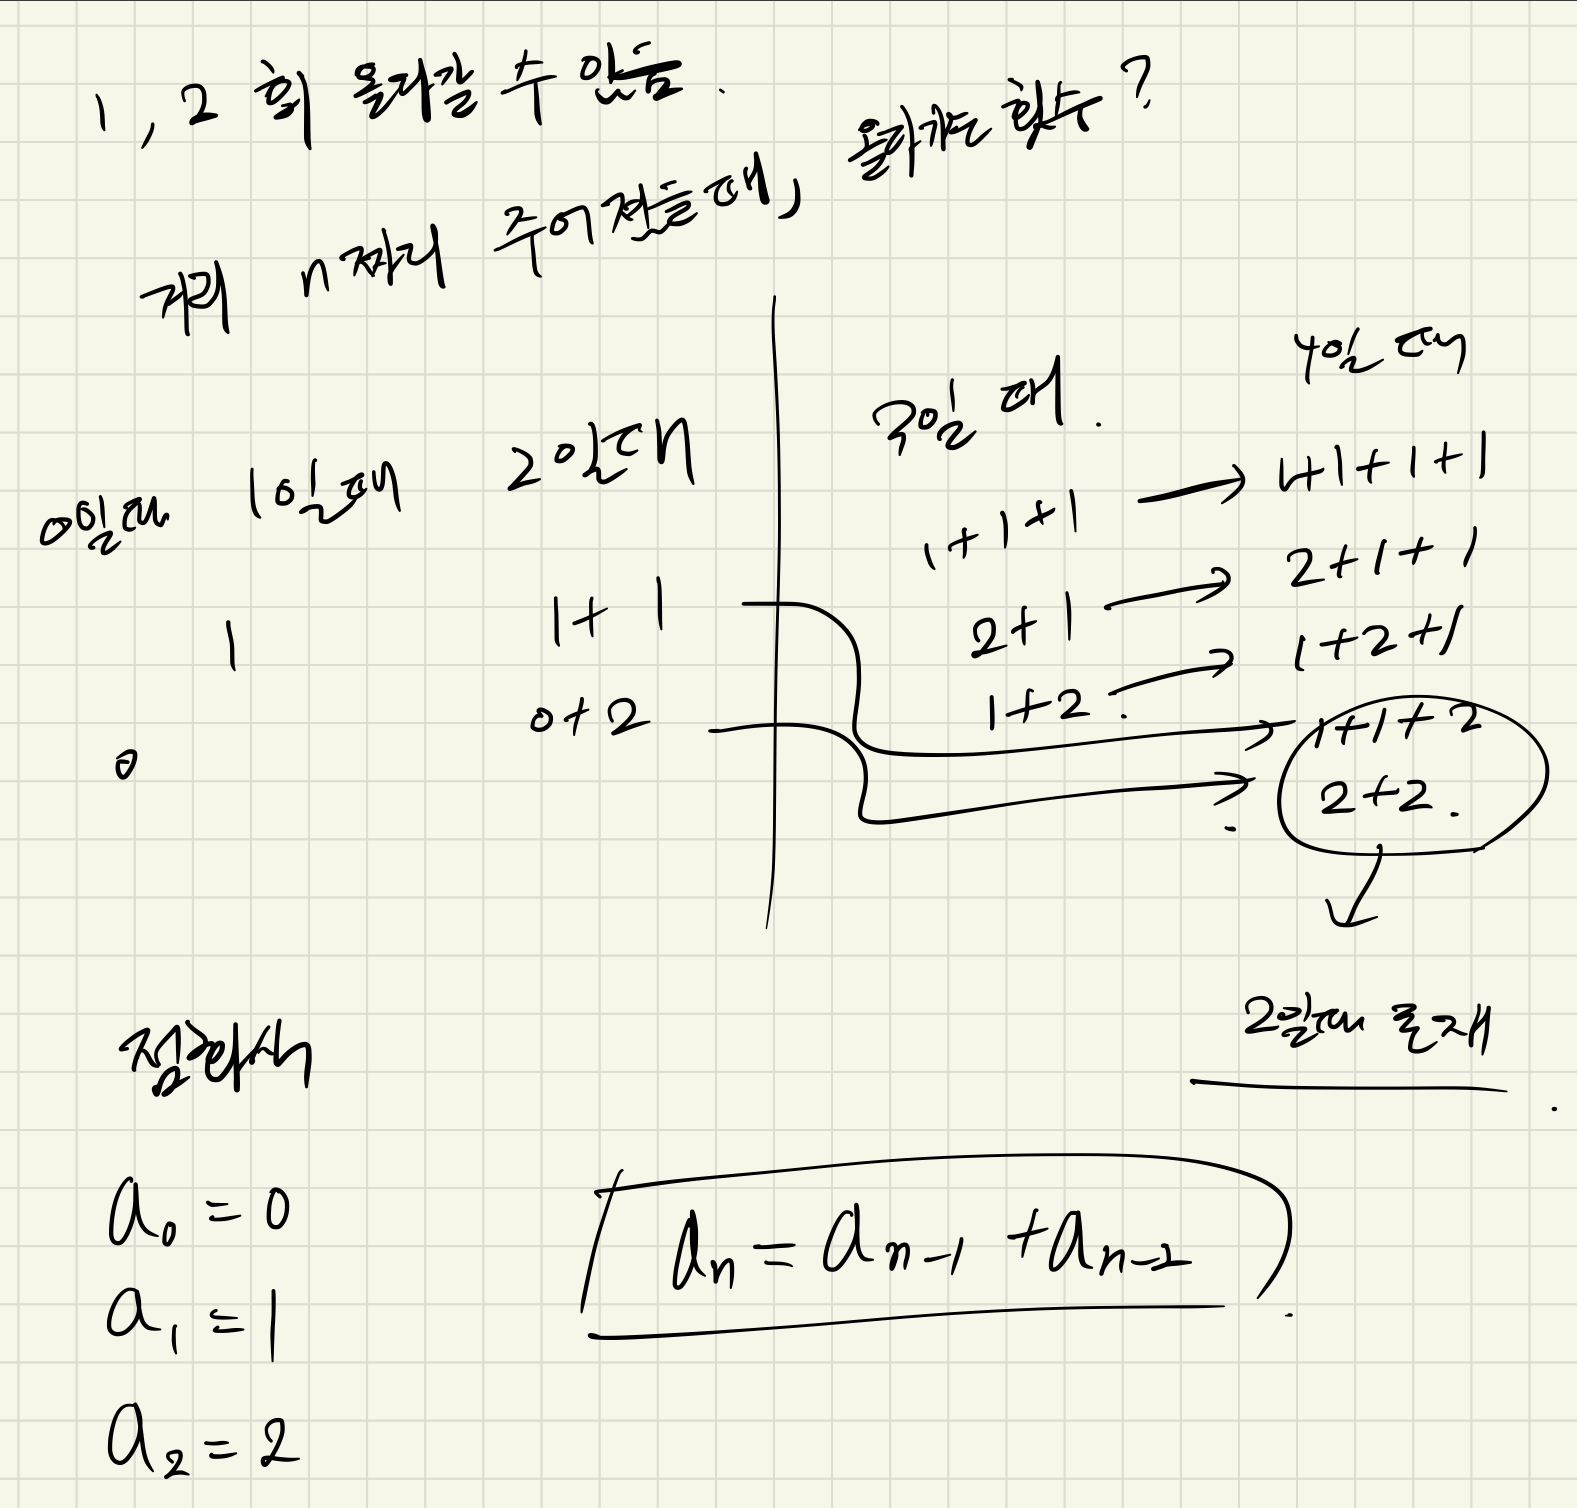 1, 2 회 올라갈 수 있음.
거리 n짜리 주어졌을때, 올라가는 횟수?
0일때 1일때 2일때 3일 때. 4일 때
1+1+1 → 1+1+1+1
1 1+1 2+1 → 2+1+1
0 0+2 1+2. → 1+2+1
1+1+2
2+2.
2일때 존재
점화식
a₀ = 0
aₙ = aₙ₋₁ + aₙ₋₂
a₁ = 1
a₂ = 2